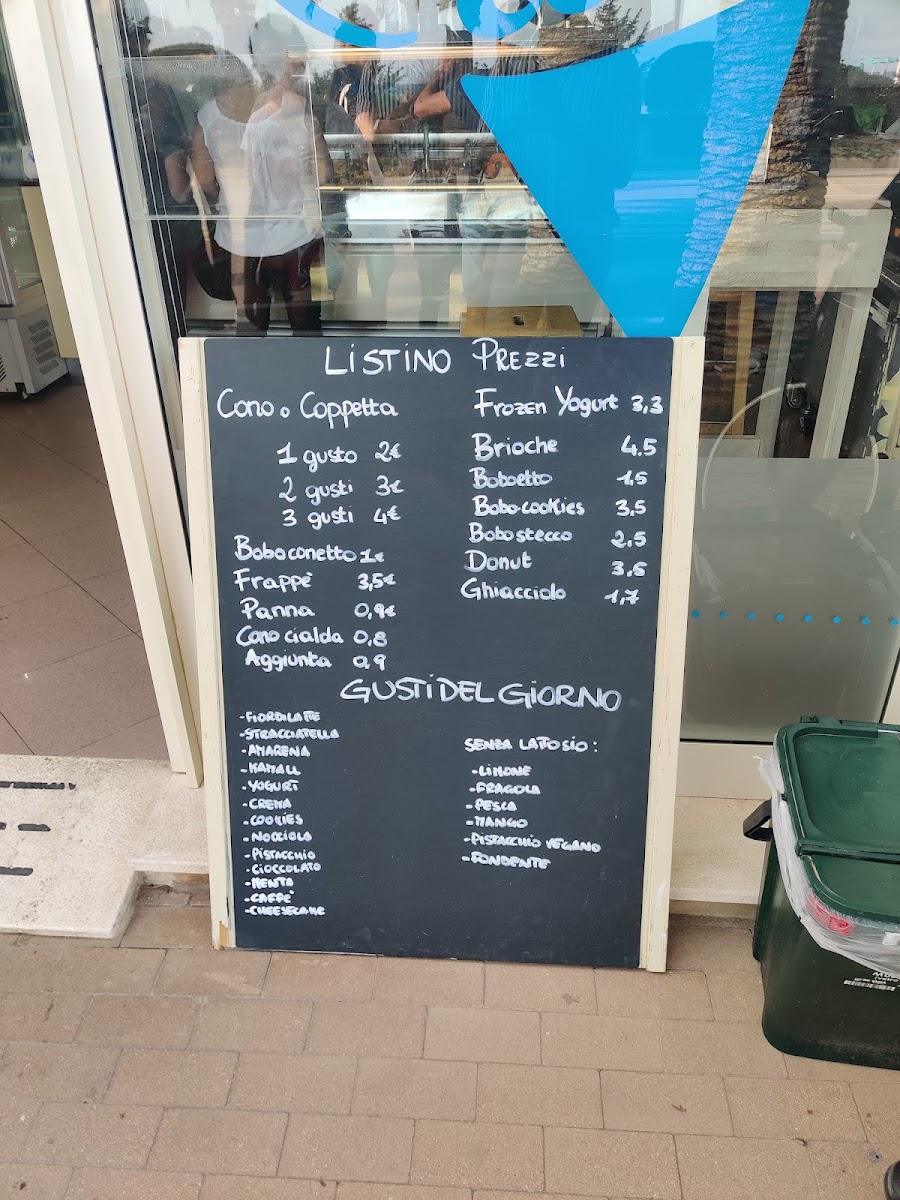 LISTINO PREZZI
Cono o Coppetta
1 gusto 2€
2 gusti 3€
3 gusti 4€
Boboconetto 1€
Frappè 3,5€
Panna 0,9€
Cono cialda 0,8
Aggiunta 0,9
Frozen Yogurt 3,3
Brioche 4.5
Boboetto 1,5
Bobo-cookies 3,5
Bobostecco 2,5
Donut 3,5
Ghiacciolo 1,7
GUSTI DEL GIORNO
-FIORDILATTE
-STRACCIATELLA
-AMARENA
-YOGURT
-CREMA
-COOKIES
-NOCCIOLA
-PISTACCHIO
-CIOCCOLATO
-MENTA
-CAFFE'
-CHEESECAKE
SENZA LATTOSIO:
-LIMONE
-FRAGOLA
-PESCA
-MANGO
-PISTACCHIO VEGANO
-FONDENTE